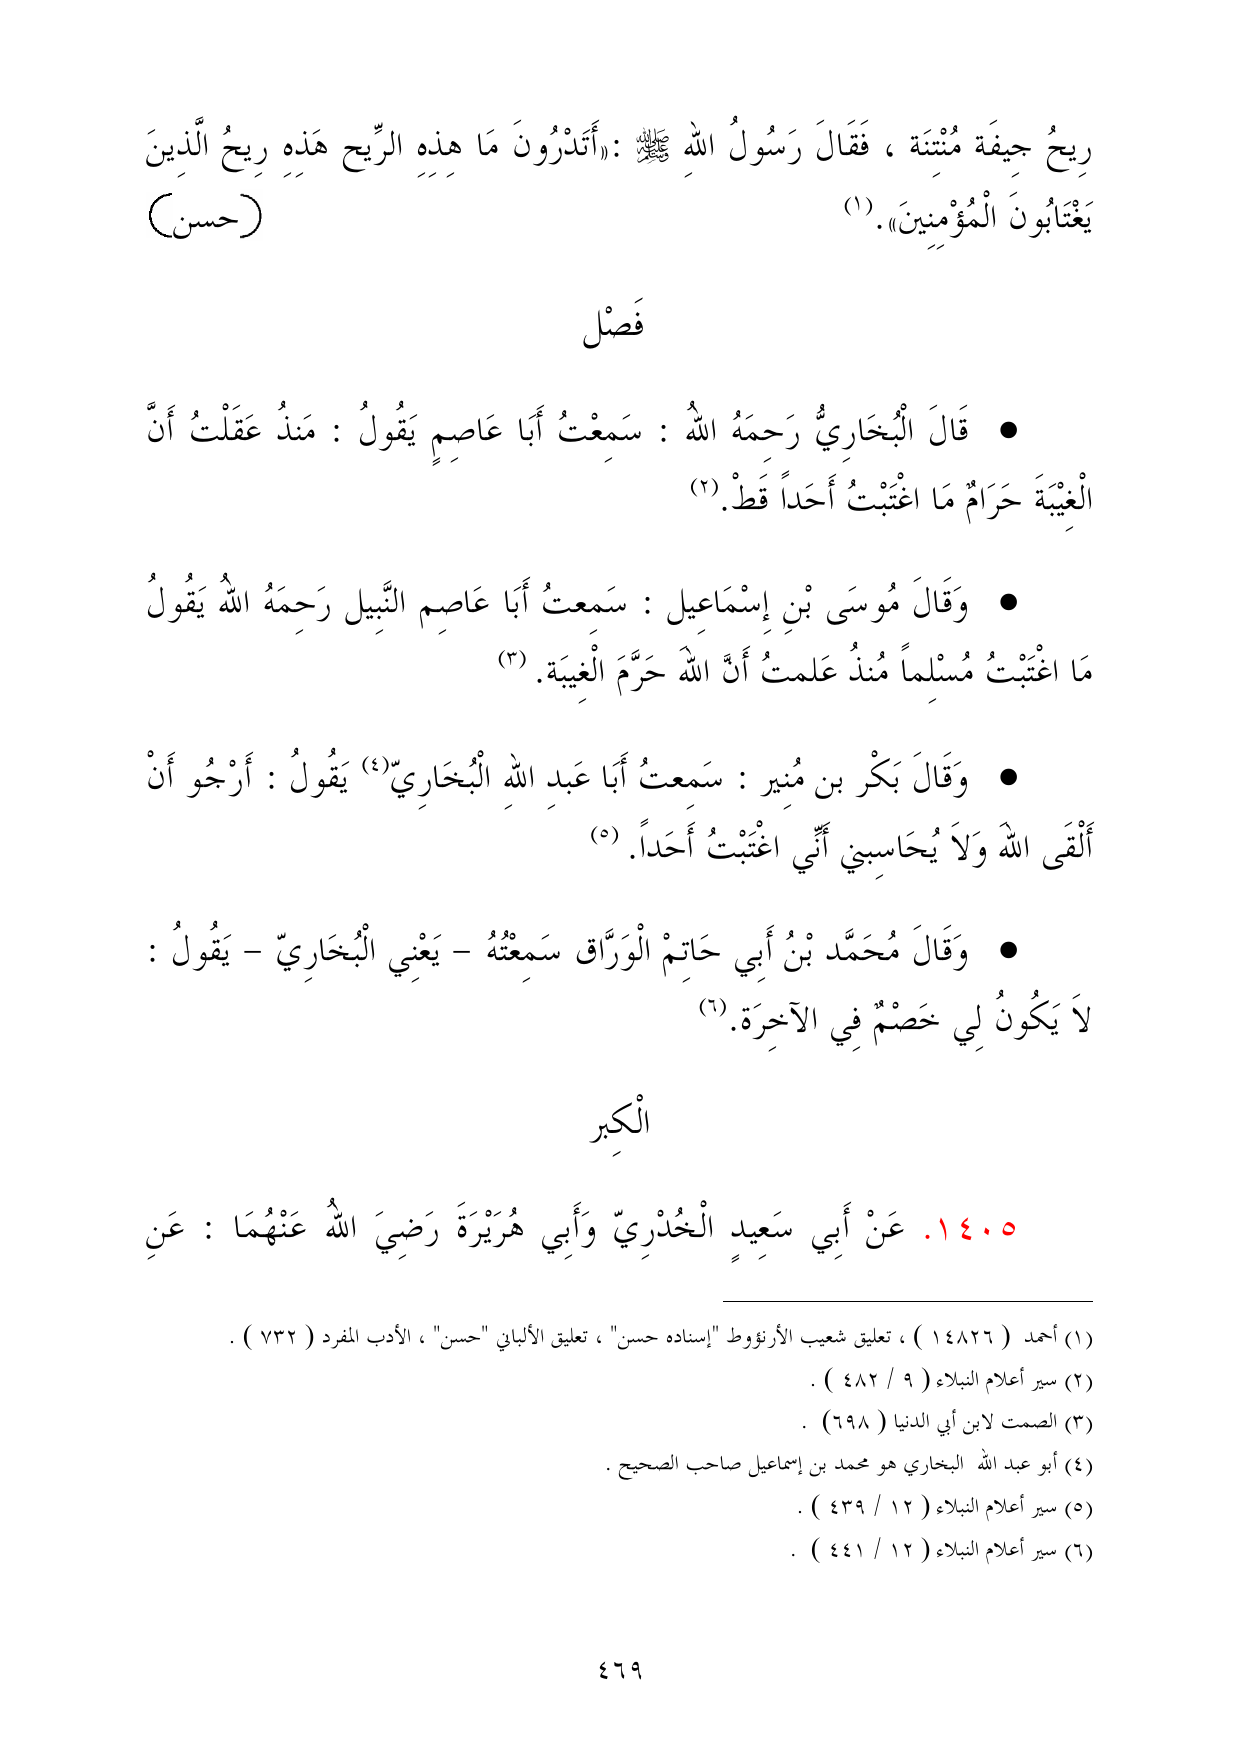 رِيحُ جِيفَة مُنْتِنَة ، فَقَالَ رَسُولُ اللهِ ﷺ :«أَتَدْرُونَ مَا هِذِهِ الرِّيح هَذِهِ رِيحُ الَّذِينَ
يَغْتَابُونَ الْمُؤْمِنِينَ» .(١) (حسن)
فَصْل
● قَالَ الْبُخَارِيُّ رَحِمَهُ اللهُ : سَمِعْتُ أَبَا عَاصِمٍ يَقُولُ : مَنذُ عَقَلْتُ أَنَّ
الْغِيْبَةَ حَرَامٌ مَا اغْتَبْتُ أَحَداً قَطْ.(٢)
● وَقَالَ مُوسَى بْنِ إِسْمَاعِيل : سَمِعتُ أَبَا عَاصِمِ النَّبِيل رَحِمَهُ اللهُ يَقُولُ
مَا اغْتَبْتُ مُسْلِماً مُنذُ عَلمتُ أَنَّ اللهَ حَرَّمَ الْغِيبَة. (٣)
● وَقَالَ بَكْر بن مُنِير : سَمِعتُ أَبَا عَبدِ اللهِ الْبُخَارِيّ(٤) يَقُولُ : أَرْجُو أَنْ
أَلْقَى اللهَ وَلاَ يُحَاسِبني أَنِّي اغْتَبْتُ أَحَداً. (٥)
● وَقَالَ مُحَمَّد بْنُ أَبِي حَاتِمْ الْوَرَّاق سَمِعْتُهُ – يَعْنِي الْبُخَارِيّ – يَقُولُ :
لاَ يَكُونُ لِي خَصْمٌ فِي الآخِرَة.(٦)
الْكِبر
١٤٠٥. عَنْ أَبِي سَعِيدٍ الْخُدْرِيّ وَأَبِي هُرَيْرَةَ رَضِيَ اللهُ عَنْهُمَا : عَنِ
(١) أحمد ( ١٤٨٢٦ ) ، تعليق شعيب الأرنؤوط "إسناده حسن" ، تعليق الألباني "حسن" ، الأدب المفرد ( ٧٣٢ ) .
(٢) سير أعلام النبلاء ( ٩ / ٤٨٢ ) .
(٣) الصمت لابن أبي الدنيا ( ٦٩٨) .
(٤) أبو عبد الله البخاري هو محمد بن إسماعيل صاحب الصحيح .
(٥) سير أعلام النبلاء ( ١٢ / ٤٣٩ ) .
(٦) سير أعلام النبلاء ( ١٢ / ٤٤١ ) .
٤٦٩